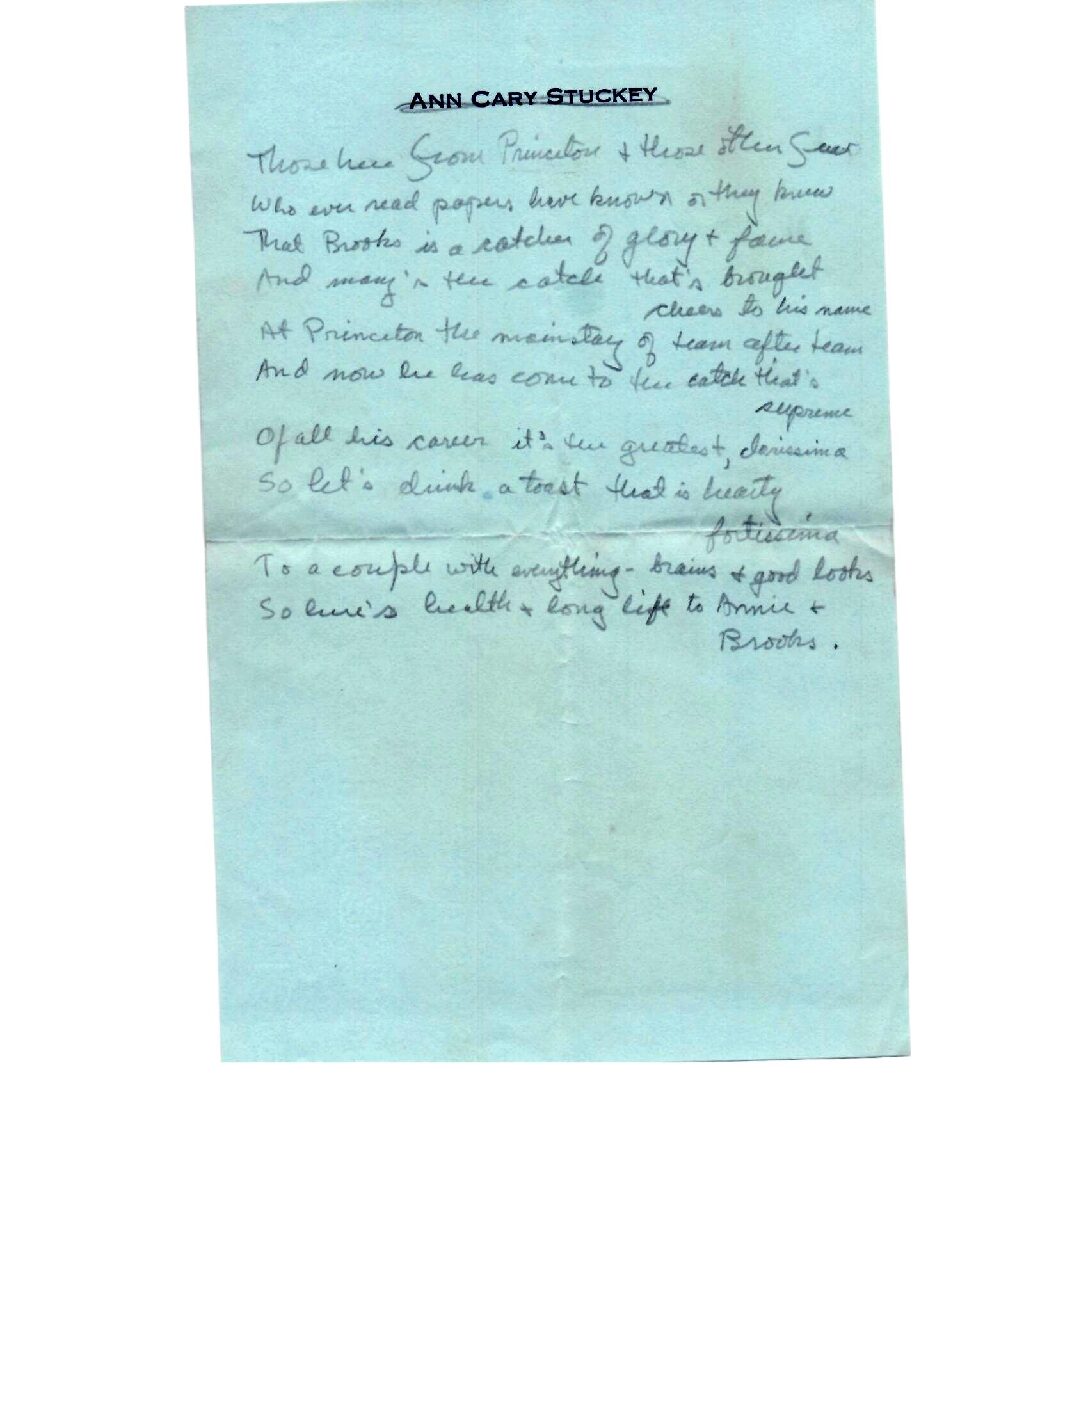 ANN CARY STUCKEY
Those here from Princeton + those other few
Who ever read papers have known or they knew
That Brooks is a catcher of glory + fame
And many's the catch that's brought
cheers to his name
At Princeton the mainstay of team after team
And now he has come to the catch that's
supreme
Of all his career it's the greatest, clarissima
So let's drink a toast that is hearty
fortissima
To a couple with everything - brains + good looks
So here's health + long life to Annie +
Brooks.